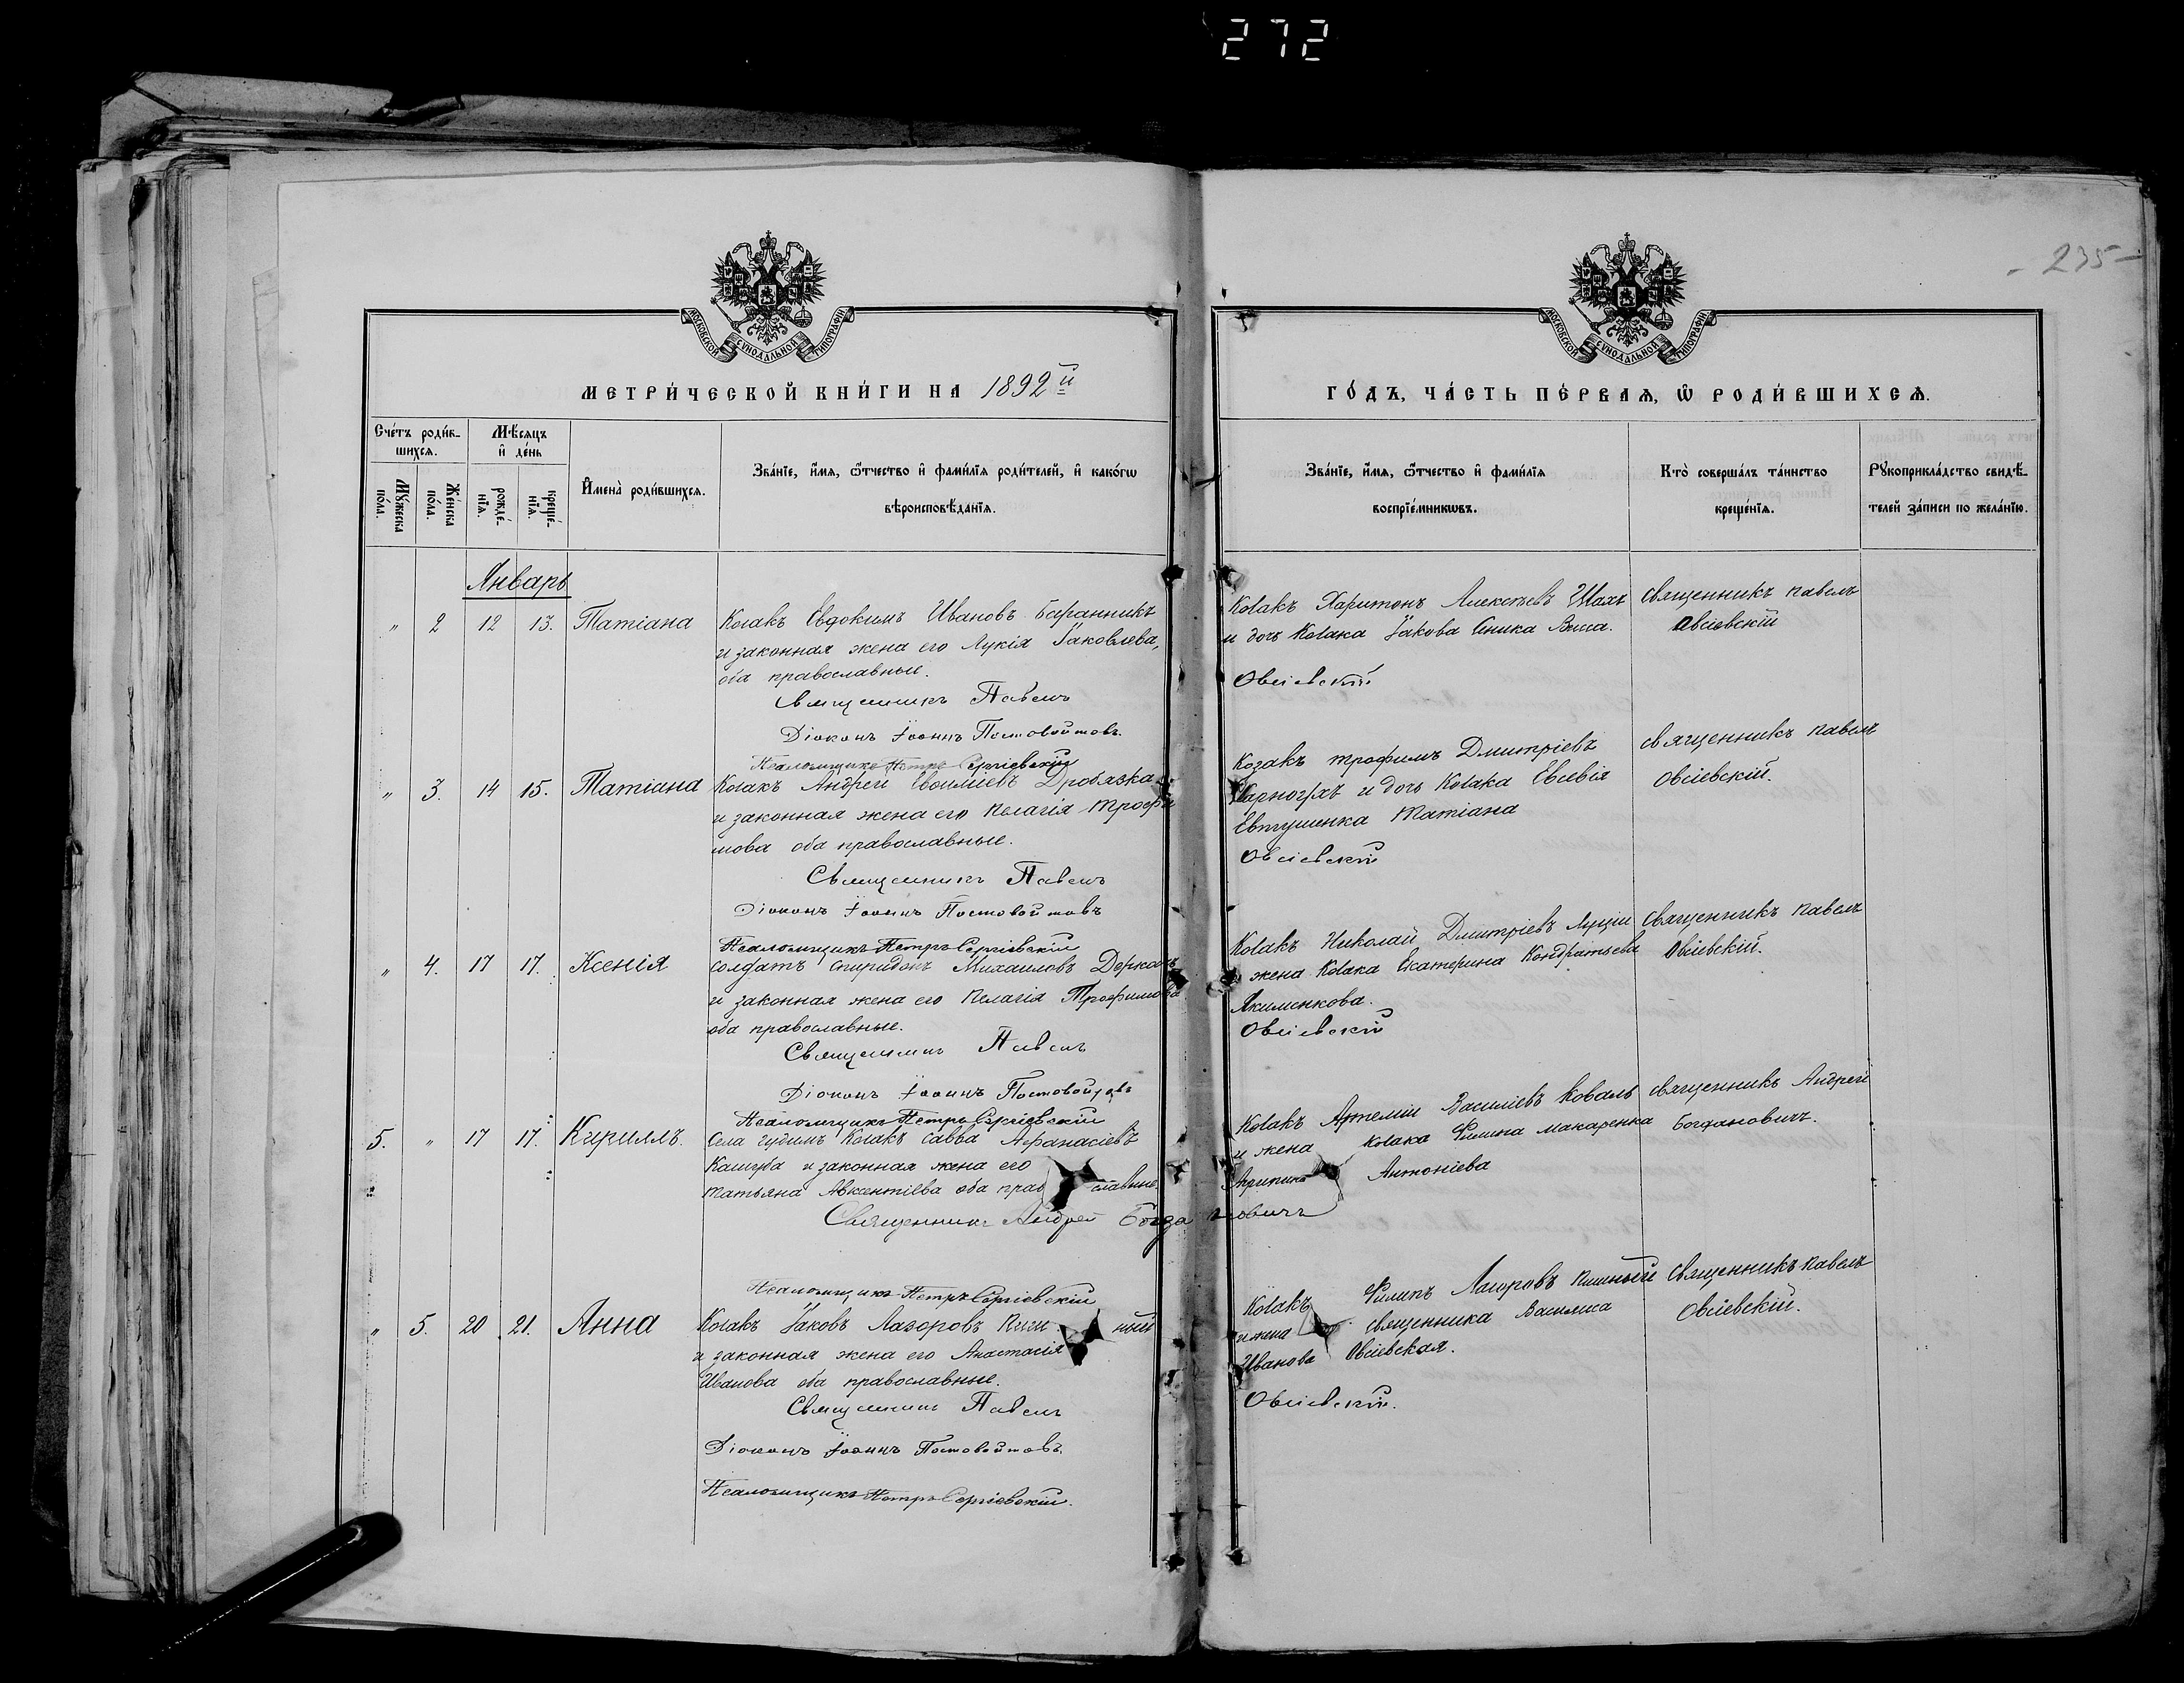 272
- 235 -
МОСКОВСКОЙ СѴНОДАЛЬНОЙ ТИПОГРАФІИ
МОСКОВСКОЙ СѴНОДАЛЬНОЙ ТИПОГРАФІИ
МЕТРИ́ЧЕСКОЙ КНИ́ГИ НА 1892й
ГО́ДЪ, ЧА́СТЬ ПЕ́РВАѦ, Ѽ РОДИ́ВШИХСѦ.
Сче́тъ роди́в-
шихсѧ.
Мꙋ́жеска по́ла.
Же́нска по́ла.
Мѣ́сѧцъ и҆ де́нь
рожде́-нїѧ.
креще́-нїѧ.
И҆мена̀ роди́вшихсѧ.
Зва́нїе, и҆́мѧ, ѻ҆́тчество и҆ фами́лїѧ роди́телей, и҆ како́гѡ
вѣроисповѣ́данїѧ.
Зва́нїе, и҆́мѧ, ѻ҆́тчество и҆ фами́лїѧ
воспрїе́мникѡвъ.
Кто̀ соверша́лъ та́инство
креще́нїѧ.
Рꙋкоприкла́дство свидѣ́-
телей за́писи по жела́нїю.
Январь
" 2 12 13. Татіана
Козакъ Евдокимъ Ивановъ Баранникъ
и законная жена его Лукія Іаковлева,
оба православные.
Священникъ Павелъ
Діаконъ Іоаннъ Постовойтовъ.
Псаломщикъ Петръ Сергіевскій
Козакъ Харитонъ Алексѣевъ Шахъ
и дочь Козака Іакова
Овсіевскій
Священникъ Павелъ
Овсіевскій
" 3. 14 15. Татіана
Козакъ Андрей Дробязка
и законная жена его Пелагія Трофи
мова оба православные.
Священникъ Павелъ
Діаконъ Іоаннъ Постовойтовъ
Псаломщикъ Петръ Сергіевскій
Козакъ Трофимъ Дмитріевъ
и дочь Козака Евсевія
Евтушенка Татіана
Овсіевскій
Священникъ Павелъ
Овсіевскій.
" 4. 17 17. Ксенія
Солдатъ Спиридонъ Михаиловъ Деркачъ
и законная жена его Пелагія Трофимова
оба православные.
Священникъ Павелъ
Діаконъ Іоаннъ Постовойтовъ
Псаломщикъ Петръ Сергіевскій
Козакъ Николай Дмитріевъ
жена Козака Екатерина Кондратьева
Якименкова.
Овсіевскій
Священникъ Павелъ
Овсіевскій.
5. " 17 17. Кириллъ.
Села Гудимъ Козакъ Савва Афанасіевъ
Кашуба и законная жена его
Татьяна Авксентіева оба прав славные
Священникъ Андрей Богда
Псаломщикъ Петръ Сергіевскій
Козакъ Артемій Василіевъ Коваль
и жена Козака Филипа Макаренка
Агрипина Антоніева
новичъ
Священникъ Андрей
Богдановичъ.
" 5. 20 21. Анна
Козакъ Іаковъ Лазоровъ
и законная жена его Анастасія
Иванова оба православные.
Священникъ Павелъ
Діаконъ Іоаннъ Постовойтовъ.
Псаломщикъ Петръ Сергіевскій.
Козакъ Филипъ Лазоровъ
и жена священника Василиса
Иванова Овсіевская.
Овсіевскій.
Священникъ Павелъ
Овсіевскій.